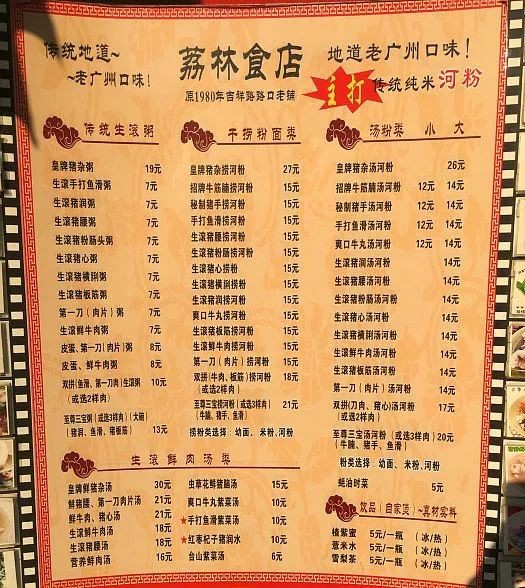 传统地道~
~老广州口味!
荔林食店
原1980年吉祥路路口老铺
地道老广州口味!
主打 传统纯米河粉
传统生滚粥
皇牌猪杂粥 19元
生滚手打鱼滑粥 7元
生滚猪润粥 7元
生滚猪腰粥 7元
生滚猪粉肠头粥 7元
生滚猪心粥 7元
生滚猪横脷粥 7元
生滚猪板筋粥 7元
第一刀(肉片)粥 7元
生滚鲜牛肉粥 7元
皮蛋、第一刀(肉片)粥 8元
皮蛋、鲜牛肉粥 8元
双拼(鱼滑、第一刀肉)生滚粥 10元
(或选2样肉)
至尊三宝粥(或选3样肉)(大碗)
(猪润、鱼滑、猪板筋) 13元
干捞粉面类
皇牌猪杂捞河粉 27元
招牌牛筋腩捞河粉 15元
秘制猪手捞河粉 15元
手打鱼滑捞河粉 15元
生滚猪腰捞河粉 15元
生滚猪粉肠捞河粉 15元
生滚猪心捞粉 15元
生滚猪横脷捞粉 15元
生滚猪润捞河粉 15元
爽口牛丸捞河粉 15元
生滚猪板筋捞河粉 15元
生滚鲜牛肉捞河粉 15元
第一刀(肉片)捞河粉 15元
双拼(牛肉、板筋)捞河粉 18元
(或选2样肉)
至尊三宝捞河粉(或选3样肉) 21元
(牛腩、猪手、鱼滑)
捞粉类选择:幼面、米粉、河粉
汤粉类 小 大
皇牌猪杂汤河粉 26元
招牌牛筋腩汤河粉 12元 14元
秘制猪手汤河粉 12元 14元
手打鱼滑汤河粉 12元 14元
爽口牛丸汤河粉 12元 14元
生滚猪润汤河粉 14元
生滚猪腰汤河粉 14元
生滚猪粉肠汤河粉 14元
生滚猪心汤河粉 14元
生滚猪横脷汤河粉 14元
生滚鲜牛肉汤河粉 14元
生滚猪板筋汤河粉 14元
第一刀(肉片)汤河粉 14元
双拼(刀肉、猪心)汤河粉 17元
(或选2样肉)
至尊三宝汤河粉(或选3样肉) 20元
(牛腩、猪手、鱼滑)
粉类选择:幼面、米粉、河粉
蚝油时菜 5元
生滚鲜肉汤类
皇牌鲜猪杂汤 30元
鲜猪腰、第一刀肉片汤 21元
鲜牛肉、猪心汤 21元
生滚鲜牛肉汤 18元
生滚猪腰汤 18元
营养鲜肉汤 16元
虫草花鲜猪脑汤 15元
爽口牛丸紫菜汤 10元
★手打鱼滑紫菜汤 10元
★红枣杞子猪润水 10元
台山紫菜汤 6元
饮品(自家煲)~真材实料
楂紫蜜 5元/一瓶 (冰/热)
薏米水 5元/一瓶 (冰/热)
雪梨茶 5元/一瓶 (冰/热)